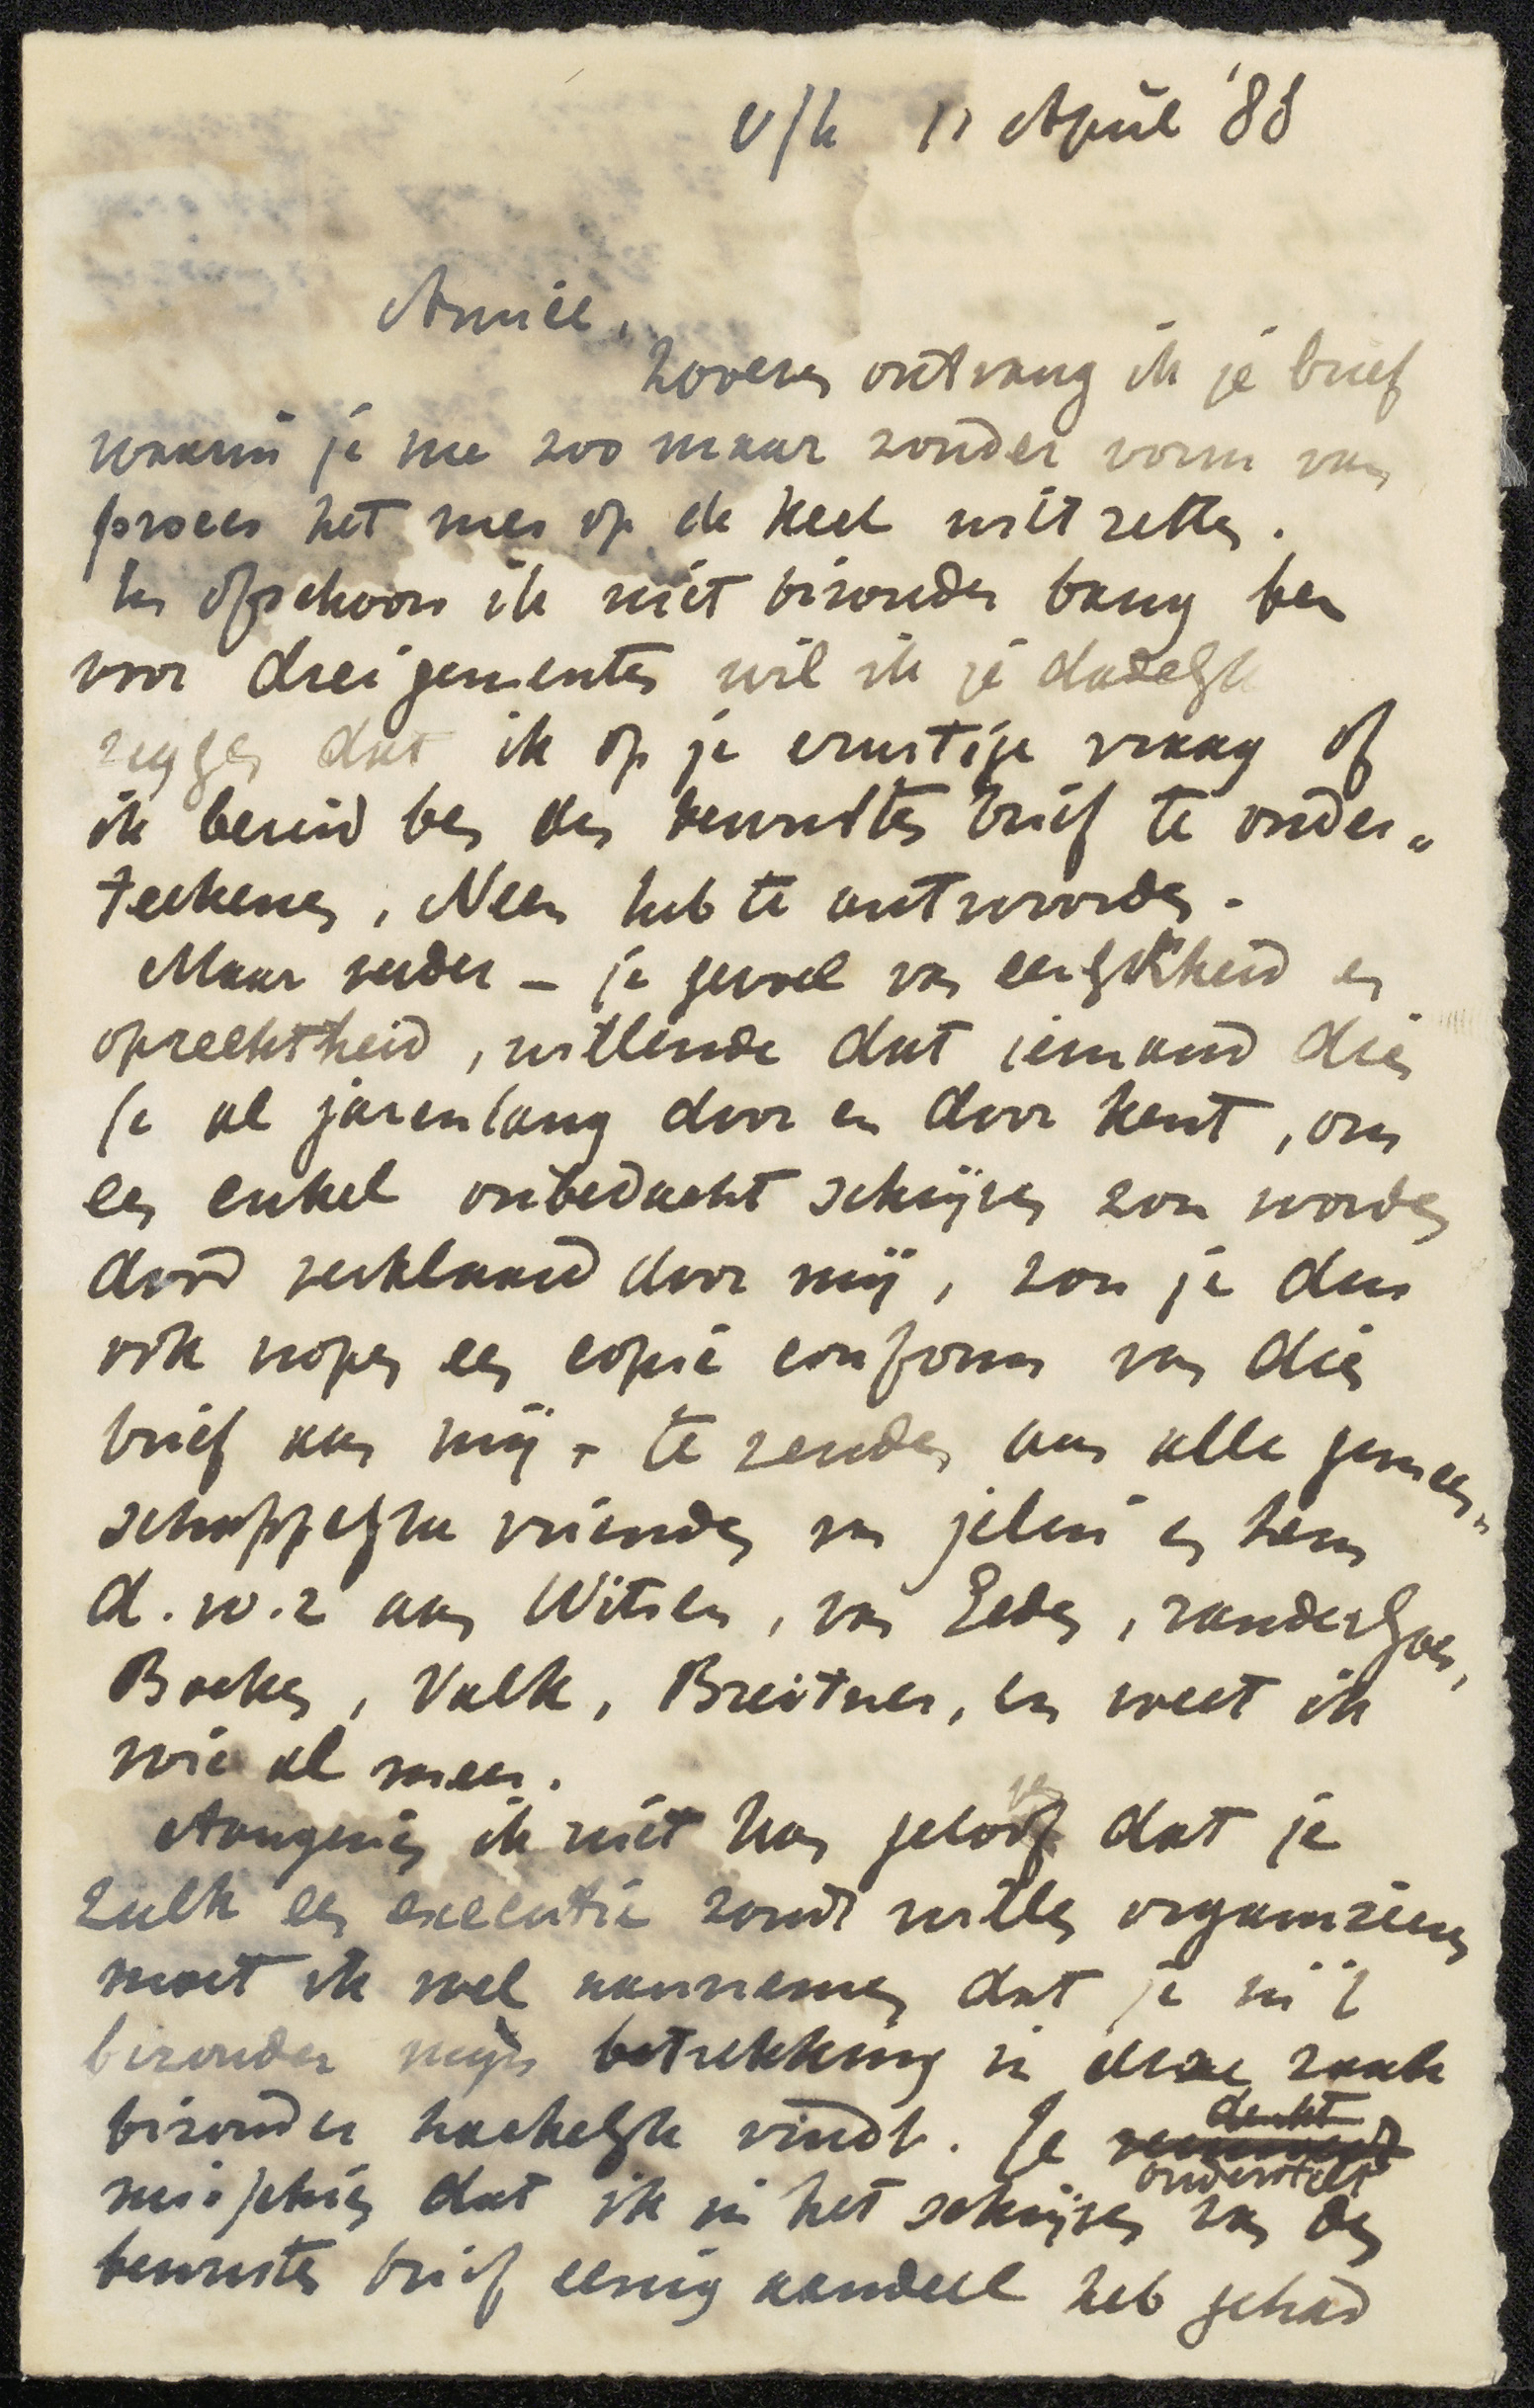 v/h 11 April '88
Annie,
Zooeven ontvang ik je brief
waarin je me zoo maar zonder vorm van
proces het mes op de keel wilt zetten.
En ofschoon ik niet bizonder bang ben
voor dreigementen wil ik je dadelijk
zeggen dat ik op je ernstige vraag of
ik bereid ben den bewusten brief te onder„
teekenen, Neen heb te antwoorden.
Maar verder – je gevoel van eerlijkheid en
oprechtheid, willende dat iemand dien
je al jarenlang door en door kent, om
een enkel onbedacht schrijven zou worden
dood verklaard door mij, zou je dan
ook nopen een copie conform van dien
brief aan mij, te zenden aan alle gemeen„
schappelijke vrienden van jelui en hem
d.w.z aan Witsen, van Eeden, vanderGoes,
Boeken, Valk, Breitner, en weet ik
wie al meer.
Aangezien ik niet kan gelooven dat je
zulk een executie zoudt willen organiseeren
moet ik wel aannemen dat je in 't
bizonder mijn betrekking in deze zaak
bizonder hachelijk vindt. Je
denkt
onderstelt
misschien dat ik in het schrijven van den
bewusten brief eenig aandeel heb gehad